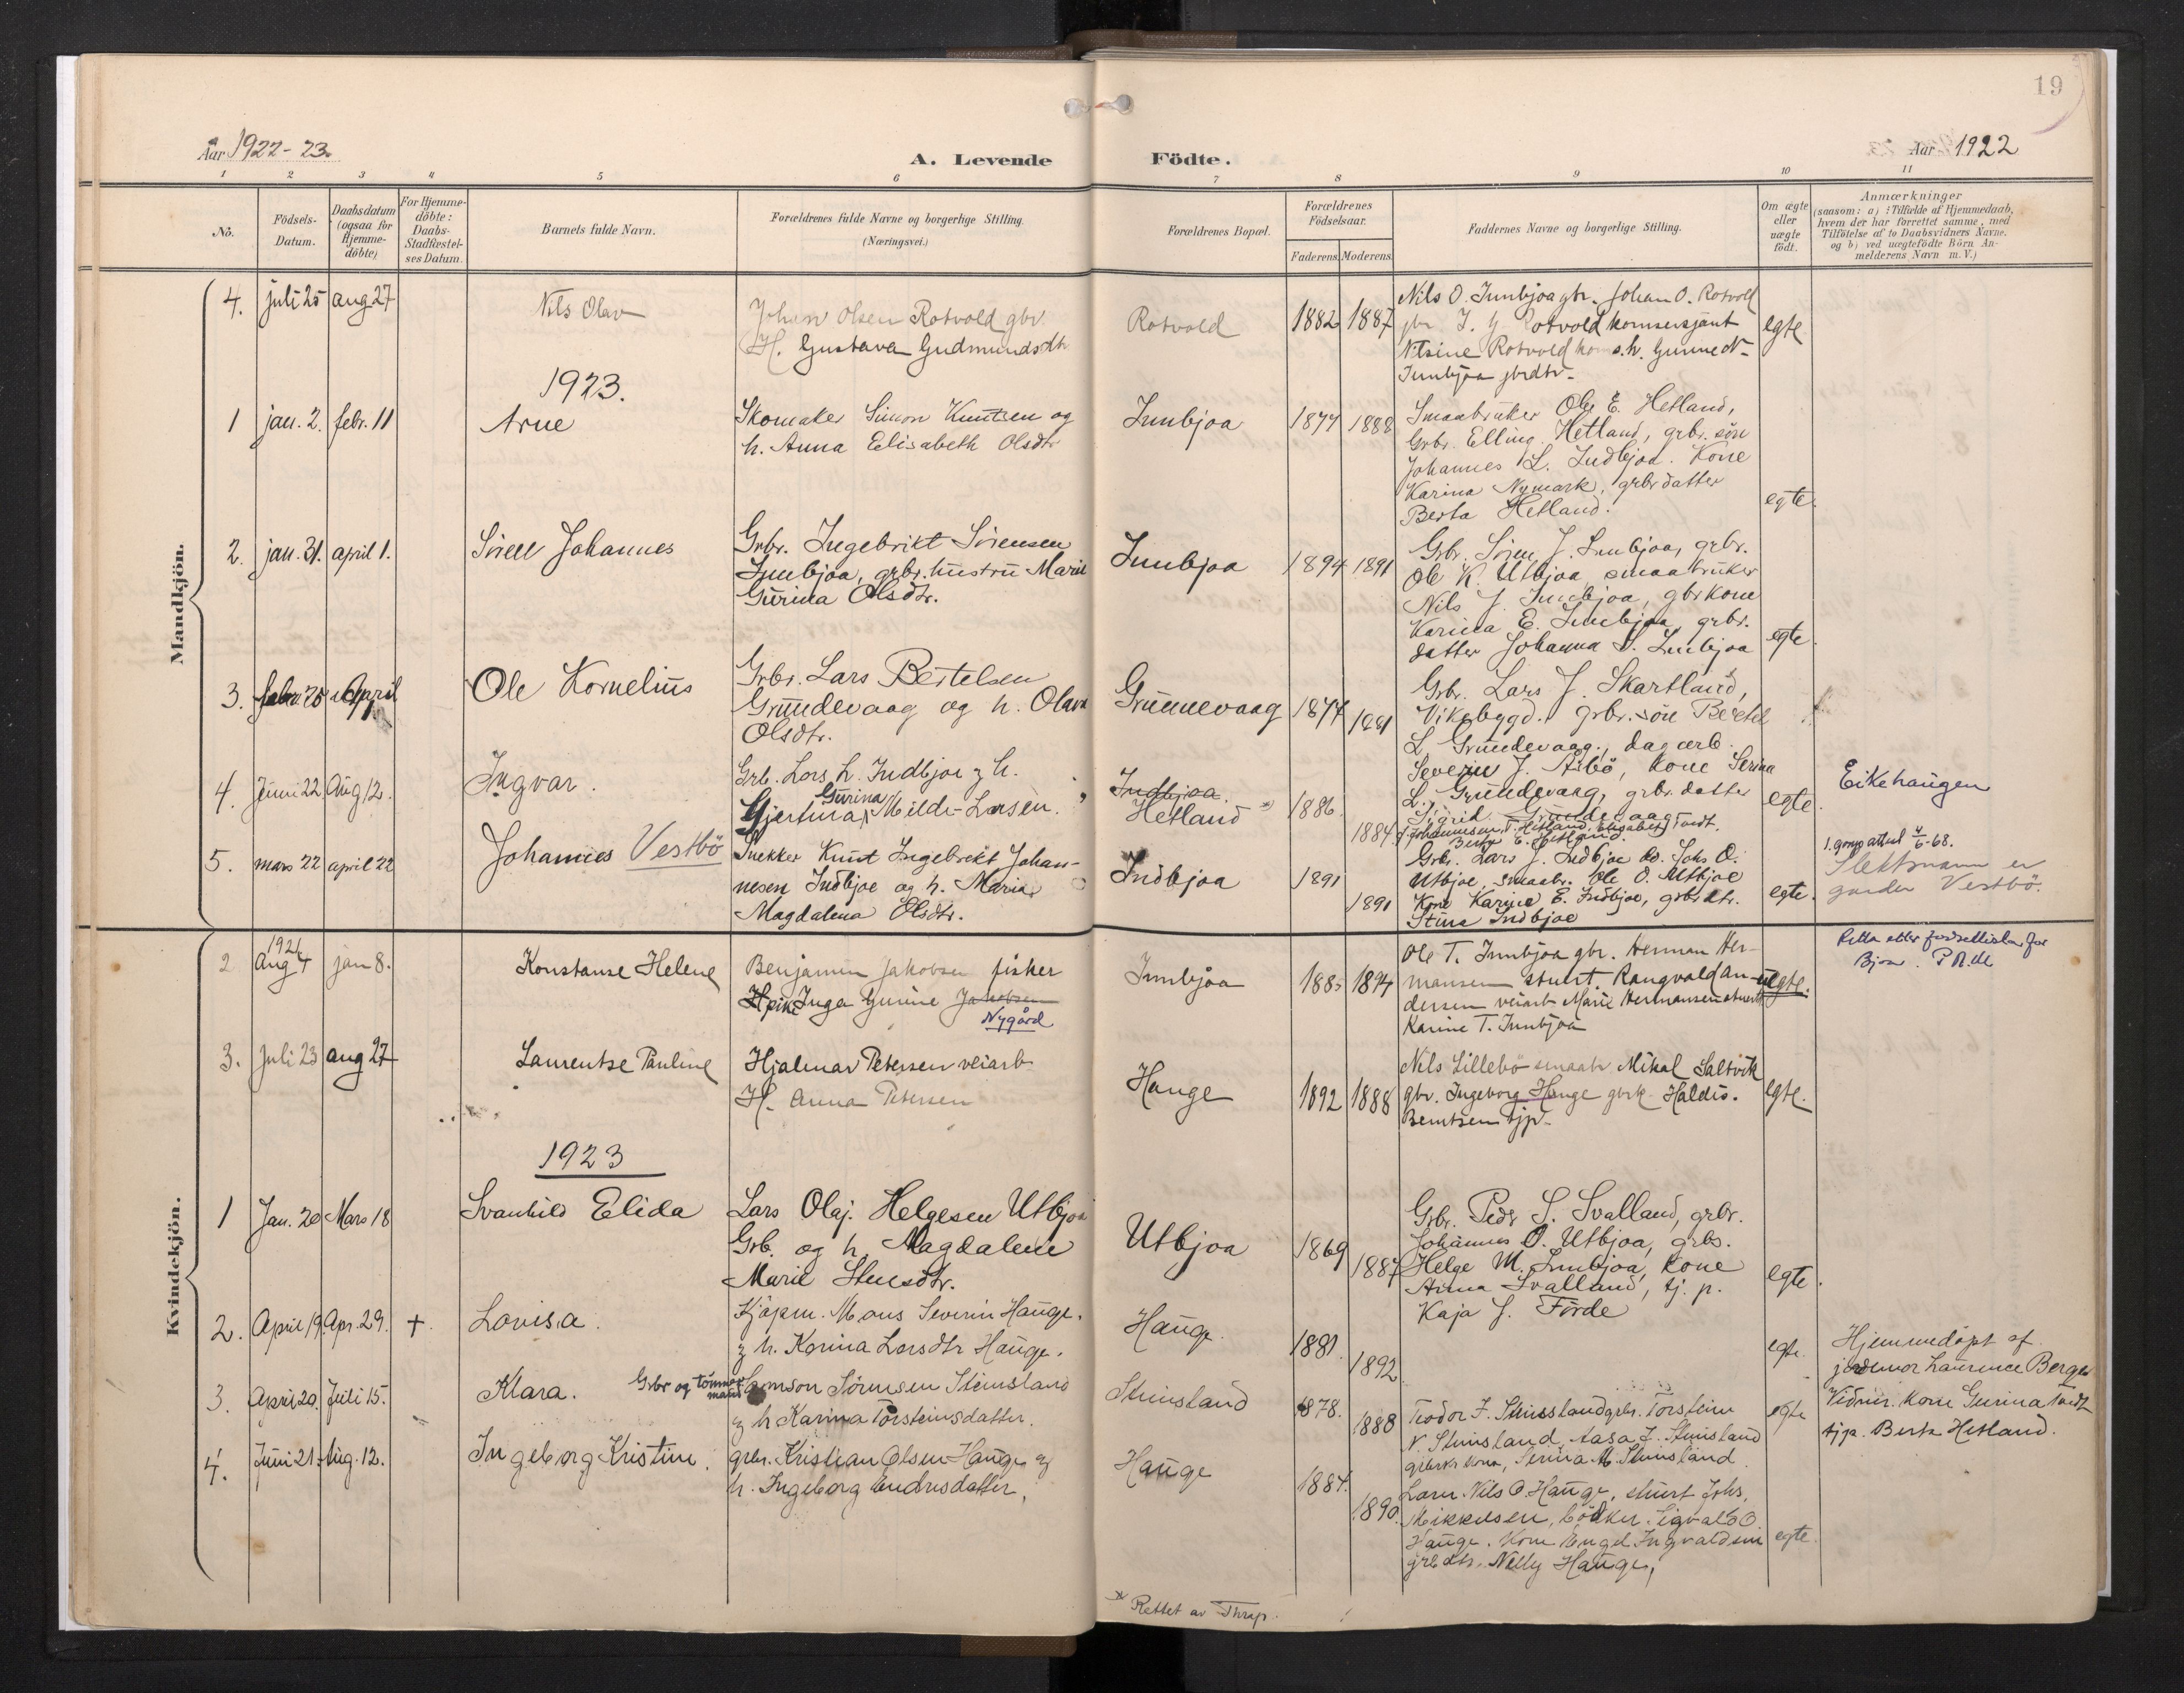 19
Aar 1922-23.
A. Levende
Födte.
Aar 1922
1 2 3 4 5 6
7 8 9 10 11
No.
Födsels-Datum.
Daabsdatum (ogsaa for Hjemme-döbte)
For Hjemme-döbte: Daabs-Stadfæstel-ses Datum.
Barnets fulde Navn.
Forældrenes fulde Navne og borgerlige Stilling.
(Næringsvei.)
Forældrenes Bopæl.
Forældrenes Födselsaar.
Faderens. Moderens.
Faddernes Navne og borgerlige Stilling.
Om ægte eller uægte födt.
Anmærkninger
(saasom: a) i Tilfælde af Hjemmedaab,
hvem der har forrettet samme, med
Tilföielse af to Daabsvidners Navne.
og b) ved uægtefödte Börn An-
melderens Navn m. V.)
Mandkjön.
4. juli 25 aug 27
Nils Olav
Johan Olsen Rotvold gbr.
H. Gustava Gudmundsdtr
Rotvold
1882 1887
Nils O. Innbjoa gbr. Johan O. Rotvold
gbr Rotvold komsersjant
Nilsine Rotvold Gunne N-
Innbjoa gbrdtr-
egte
1923.
1 jan. 2. febr. 11
Arne
Skomaker Simon Knutsen og
h. Anna Elisabeth Olsdtr
Innbjoa
1877 1888
Smaabruker Ole E. Hetland,
Grbr. Elling Hetland, grbr. sön
Johannes L. Indbjoa. Kone
Karina Nymark, grbr datter
Berta Hetland.
egte.
2. jan. 31. april 1.
Sören Johannes
Grbr. Ingebrikt Sörensen
Innbjoa, grbr. hustru Marie
Gurina Olsdtr.
Innbjoa
1894 1891
Grbr. Sören J. Innbjoa, grbr.
Ole K. Utbjoa smaabruker
Nils J. Innbjoa, gbrkone
Karina E. Innbjoa, grbr.
datter Johanna S. Innbjoa
egte.
3. febr. 25 April
Ole Kornelius
Grbr. Lars Bertelsen
Grundevaag og h. Olava
Olsdtr.
Grunnevaag
1877 1881
Grbr. Lars J. Skartland,
Vikebygd. grbr. sön Bertel
L. Grundevaag, dagarb.
Severin J. Asbö, kone Serina
L. Grundevaag, grbr. datter
Sigrid Grundevaag
egte.
4. Juni 22 Aug 12.
Ingvar.
Grb. Lars L. Indbjoe og h.
Gjertina Gurina Milde-Larsen.
Indbjoa.
Hetland *)
1886. 1884
Johannesen, T. Hetland, Elisabet Tvedt.
Berta E. Hetland.
Eikehaugen
5. mars 22 april 22
Johannes Vestbö
Snekker Knut Ingebrikt Johan-
nesen Indbjoe og h. Maria
Magdalena Olsdtr.
Indbjoa
1891 1891
Grbr. Lars J. Indbjoe do. Johs O.
Utbjoe, smaabr. Ole O. Utbjoe
Kone Karine E. Indbjoe, grbrdtr.
Stina Indbjoe
egte.
1. gongs attest 4/6-68.
Slektsnamn er
garden Vestbö.
Kvindekjön.
2. 1921 Aug 4 jan 8.
Konstanse Helene
Benjamin Jakobsen fisker
H pike Inga Gurine Jakobsen
Nygård
Innbjoa
188 1894
Ole T. Innbjoa gbr. Herman Her-
mansen stuert. Rangvald An-
dersen veiarb Marie Hermansen stuert
Karine T. Innbjoa
uegte.
Retta etter fødsellista for
Bjoa.
3. Juli 23 aug 27
Laurentse Pauline
Hjalmar Petersen veiarb
H. Anna Petersen
Hauge
1892 1888
Nils Lillebö smaabr Mikal Saltvik
gbr. Ingeborg Hauge gbrk. Haldis.
Berntsen tjp-
egte.
1923
1 Jan. 20 Mars 18
Svanhild Elida
Lars Olaj. Helgesen Utbjoa
Grb. og h. Magdalene
Marie Stensdtr.
Utbjoa
1869 1887
Grbr. Peder S. Svalland, grbr.
Johannes O. Utbjoa, grbr.
Helge M. Innbjoa, kone
Anna Svalland, tj. p.
Kaja J. Förde
egte.
2. April 19 Apr. 29. +.
Lovisa.
Kjöpm. Mons Severin Hauge.
og h. Karina Larsdtr Hauge.
Hauge.
1881. 1892
egte.
Hjemmedöpt af
jordmor Laurence Berge
Vidner. Kone Gurina Tvedt
tjp. Berta Hetland.
3. April 20. Juli 15.
Klara.
Grbr og tömmermand Samson Sörensen Stensland
og h Karina Torsteinsdatter.
Stensland
1878. 1888
Teodor F. Stensland grbr. Torstein
N. Stensland. Aasa F. Stensland
Kone, Serina M. Stensland.
egte
4. Juni 21. Aug. 12.
Ingeborg Kristine.
grbr. Kristian Olsen Hauge og
h. Ingeborg Endresdatter,
Hauge
1884. 1890.
Lærer. Nils O. Hauge, stuert Johs.
Mikkelsen, bökker Sigvald O
Hauge. Kone Engel Ingvaldsen
grbdtr. Nelly Hauge,
egte
* Rettet av Thrap.